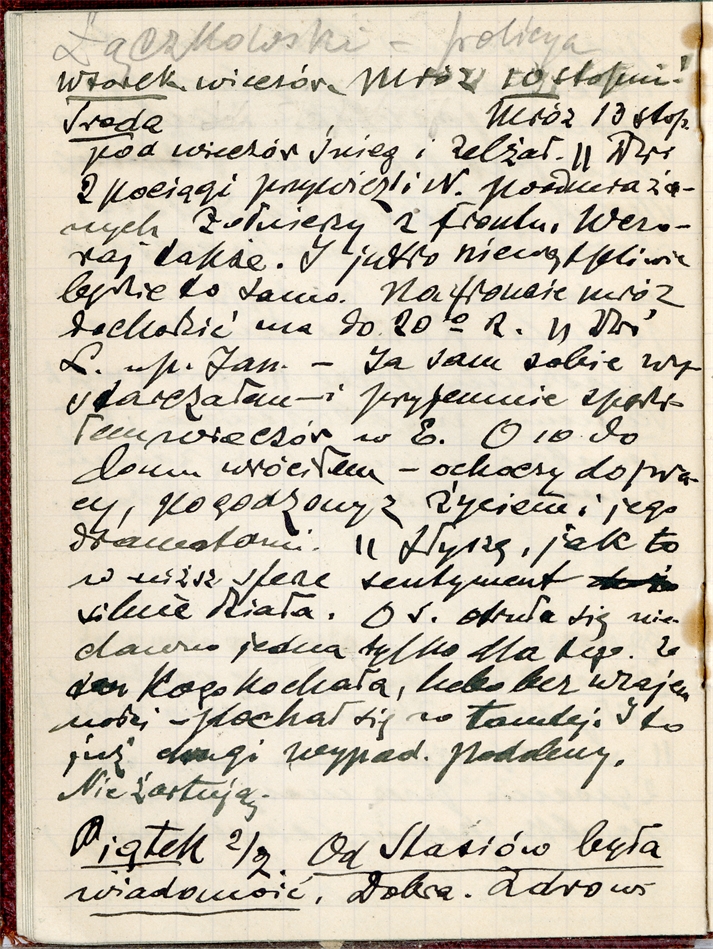 Łączkowski – policja
Wtorek wieczór Mróz 10 stopni!
Środa Mróz 13 stop.
pod wieczór śnieg i zelżał. || Dziś
2 pociągi przywiozły N. poodmraża-
nych żołnierzy z frontu. Wczo-
raj także. I jutro niewątpliwie
będzie to samo. Na froncie mróz
dochodzić ma do 20° R. || Dziś
Ja sam sobie wy-
starczałem – i przyjemnie spędzi-
łem wieczór w E. O 10 do
domu wróciłem – ochoczy do pra-
cy, pogodzony z życiem i jego
dramatami. || Słyszę, jak to
w niższ sferze sentyment
silnie działa. O S. otruła się nie-
dawno jedna tylko dla tego. że
kogo kochała, bez wzajem
ności – kochał się w tamtej. I to
już drugi wypad. podobny.
Nie żartują.
Piątek 2/2. Od Stasiów była
wiadomość. Dobra. Zdrowi